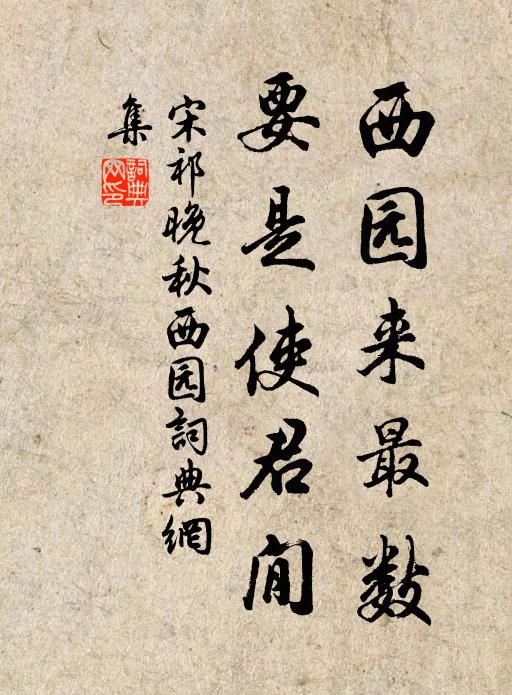 西园来最数
要是使君闲
宋祁晚秋西园詞典網
集
詞典網印